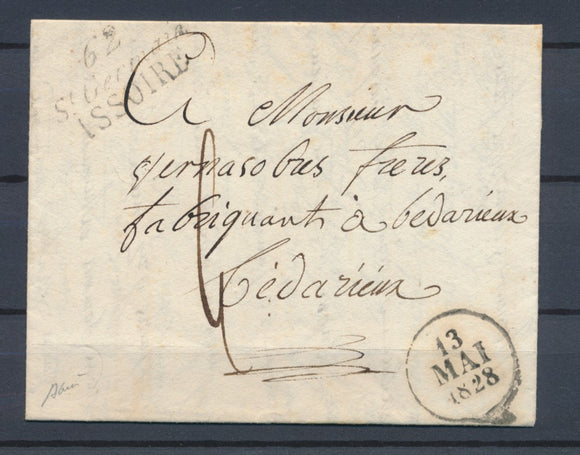 62
St Germain
ISSOIRE
A Monsieur
Vernasobres freres,
fabriquants à bédarieux
Bédarieux
13
MAI
1828